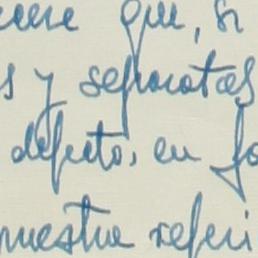 que, si
y separatas
defecto, en
nuestra referi